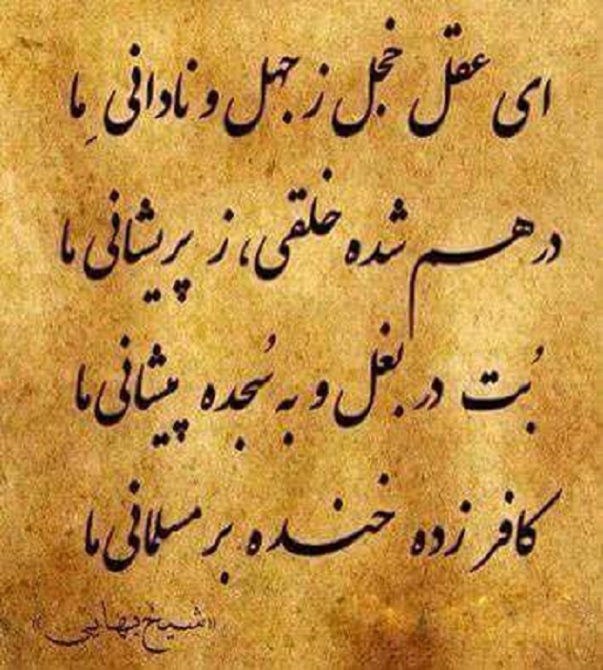 ای عقل خجل ز جهل و نادانی ِما
درهم شده خلقی، ز پریشانی ما
بُت در بغل و به سُجده پیشانی ما
کافر زده خنده بر مسلمانی ما
«شیخ بهایی»